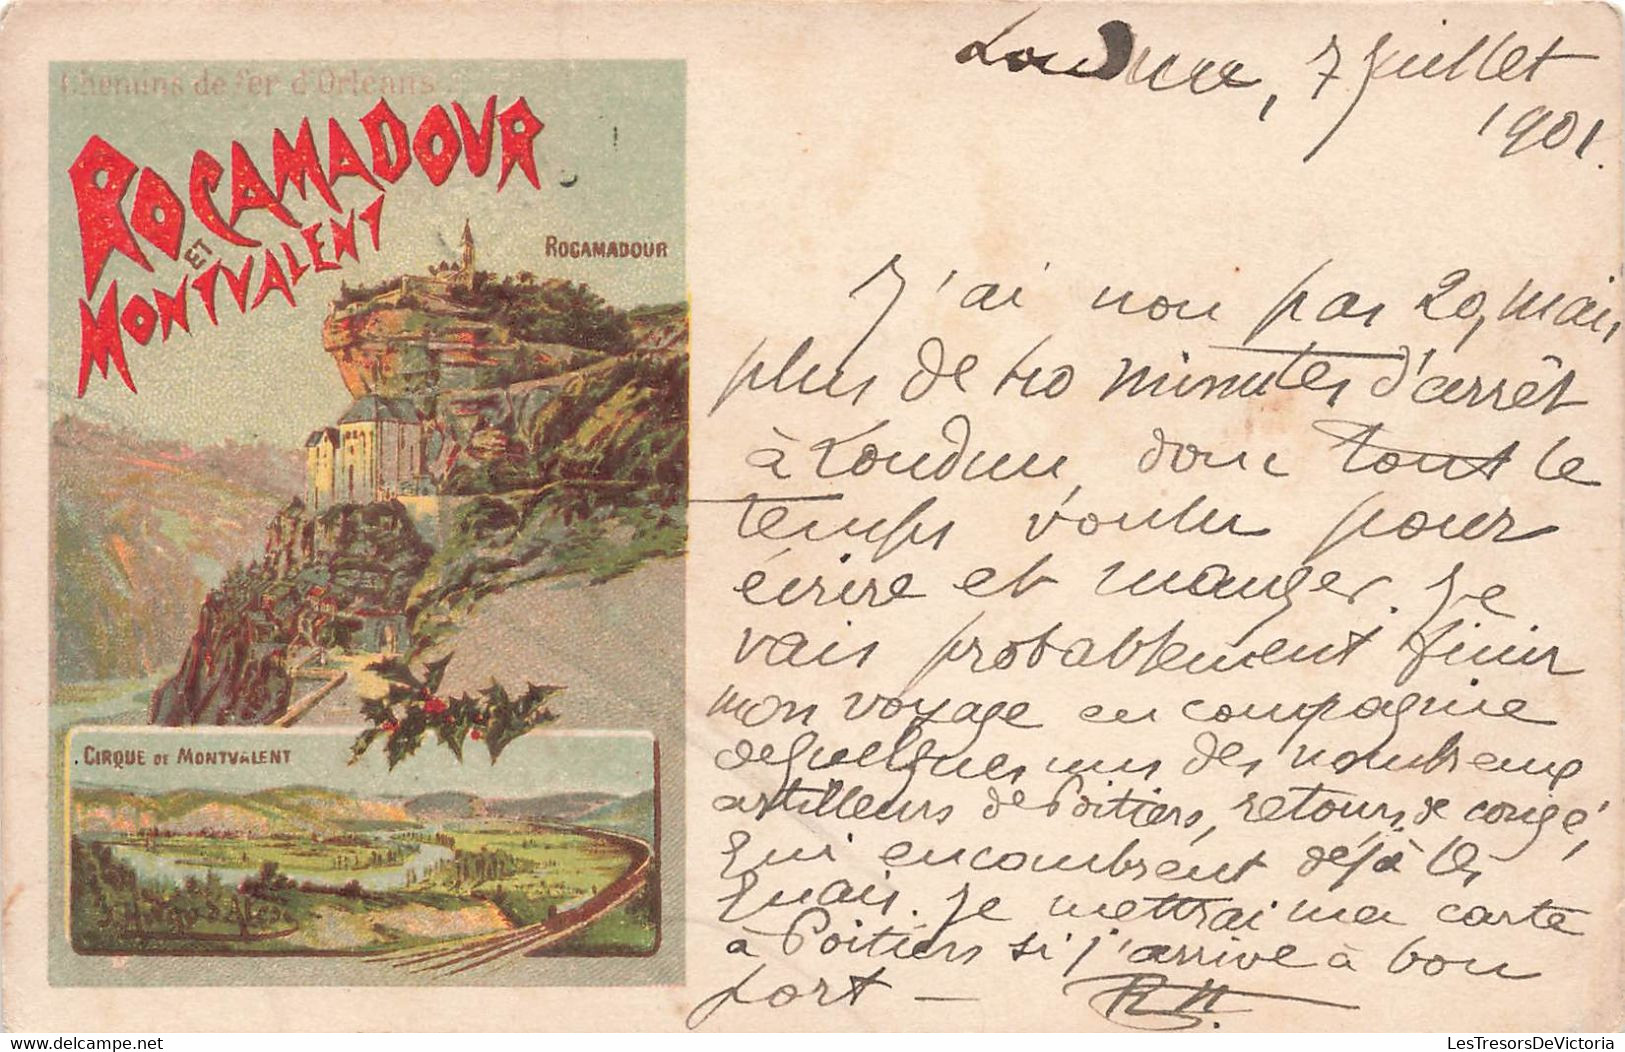 Chemins de fer d'Orléans.
ROCAMADOUR
ET
MONTVALENT
ROCAMADOUR
CIRQUE DE MONTVALENT
F. Hugo d'Alési
Loudun, 7 Juillet
1901.
J'ai non pas 20, mais
plus de 40 minutes d'arrêt
à Loudun, donc tout le
temps voulu pour
écrire et manger. Je
vais probablement finir
mon voyage en compagnie
de quelques uns des nombreux
artilleurs de Poitiers, retours de congé,
qui encombrent déjà les
quais. Je mettrai ma carte
à Poitiers si j'arrive à bon
port —
LesTresorsDeVictoria
www.delcampe.net